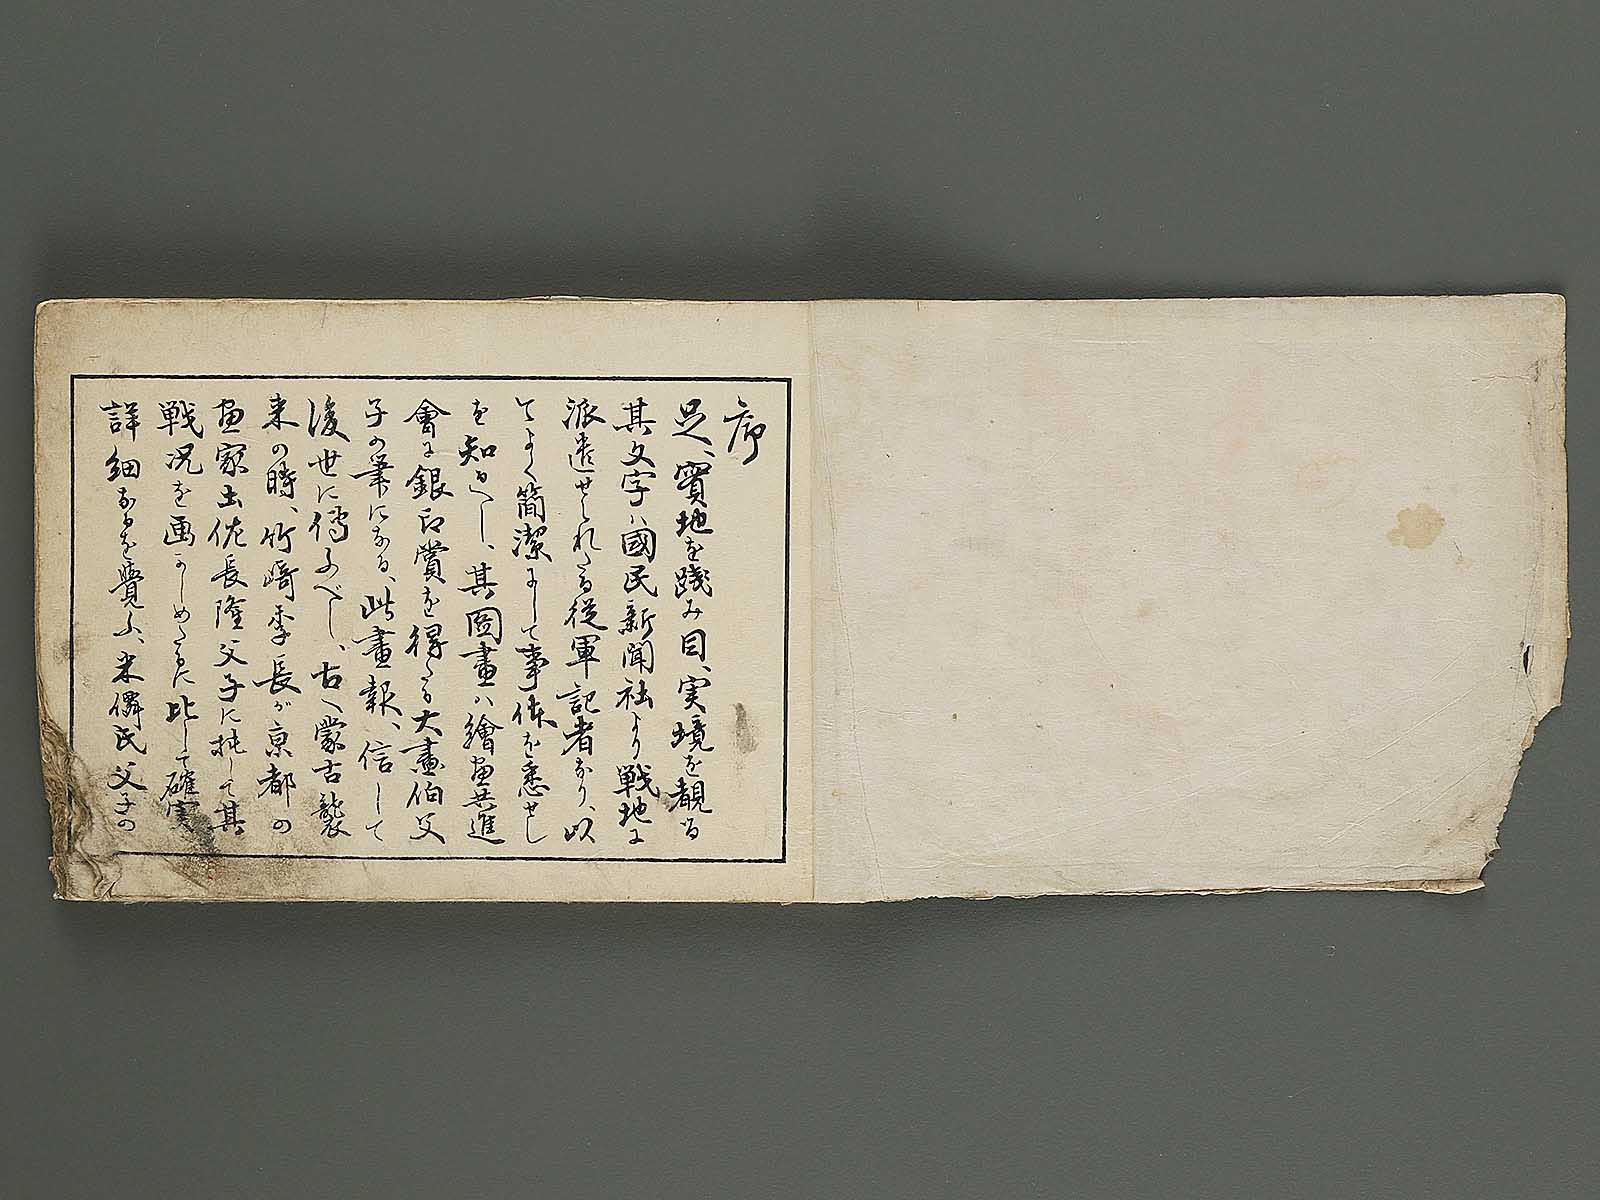 序
足、實地を踐み目、実境を覩る
其文字ハ國民新聞社より戦地に
派遣せられたる従軍記者なり、以
てよく簡潔にして事体を悉せし
を知るべし、其圖畫ハ繪畫共進
會に銀印賞を得たる大畫伯父
子の筆になる、此畫報、信して
後世に傳ふべし、古へ蒙古襲
来の時、竹﨑季長が京都の
画家土佐長隆父子に托して其
戦况を画かしめたるに比して確実
詳細なるを覺ふ、米僊氏父子の